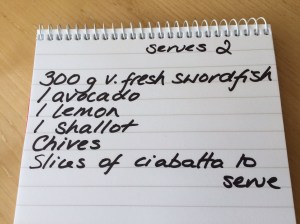 serves 2
300 g v. fresh swordfish
1 avocado
1 lemon
1 shallot
Chives
Slices of ciabatta to
serve